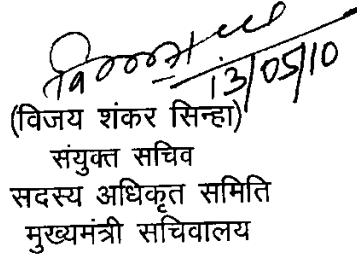 13/05/10
(विजय शंकर सिन्हा)
संयुक्त सचिव
सदस्य अधिकृत समिति
मुख्यमंत्री सचिवालय